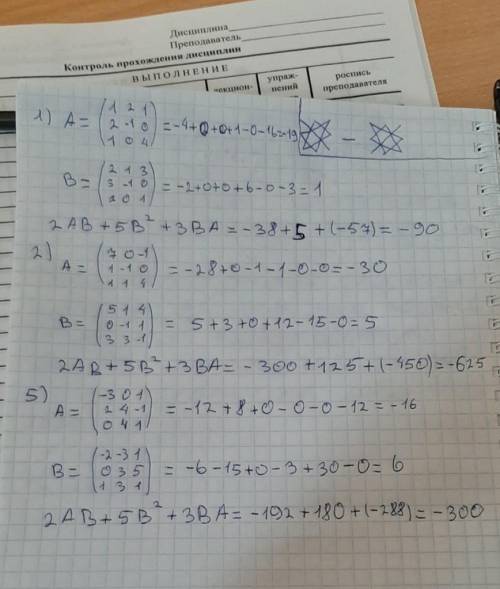 Дисциплина
Преподаватель
Контроль прохождения дисциплин
ВЫПОЛНЕНИЕ
лекцион- упраж-нений роспись преподавателя
1) A = (1 2 1
2 -1 0
1 0 4) = -4+0+0+1-0-16=-19
B = (2 1 3
3 -1 0
2 0 1) = -2+0+0+6-0-3=1
2AB+5B²+3BA=-38+5+(-57)=-90
2)
A = (7 0 -1
1 -1 0
1 1 4) = -28+0-1-1-0-0=-30
B = (5 1 4
0 -1 1
3 3 -1) = 5+3+0+12-15-0=5
2AB+5B²+3BA=-300+125+(-450)=-625
5)
A = (-3 0 1
2 4 -1
0 4 1) = -12+8+0-0-0-12=-16
B = (-2 -3 1
0 3 5
1 3 1) = -6-15+0-3+30-0=6
2AB+5B²+3BA=-192+180+(-288)=-300